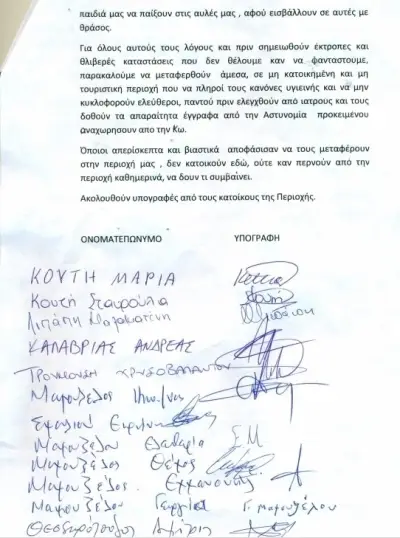 παιδιά μας να παίξουν στις αυλές μας , αφού εισβάλλουν σε αυτές με
θράσος.
Για όλους αυτούς τους λόγους και πριν σημειωθούν έκτροπες και
θλιβερές καταστάσεις που δεν θέλουμε καν να φανταστουμε,
παρακαλούμε να μεταφερθούν άμεσα, σε μη κατοικημένη και μη
τουριστική περιοχή που να πληροί τους κανόνες υγιεινής και να μην
κυκλοφορούν ελεύθεροι, παντού πριν ελεγχθούν από ιατρους και τους
δοθούν τα απαραίτητα έγγραφα από την Αστυνομία προκειμένου
αναχωρησουν απο την Κω.
Όποιοι απερίσκεπτα και βιαστικά αποφάσισαν να τους μεταφέρουν
στην περιοχή μας , δεν κατοικούν εδώ, ούτε καν περνούν από την
περιοχή καθημερινά, να δουν τι συμβαίνει.
Ακολουθούν υπογραφές από τους κατοίκους της Περιοχής.
ΟΝΟΜΑΤΕΠΩΝΥΜΟ ΥΠΟΓΡΑΦΗ
ΚΟΥΤΗ ΜΑΡΙΑ
Κουτή Σταυρούλα
ΚΑΛΑΒΡΙΑΣ ΑΝΔΡΕΑΣ
Μαμουζέλος
Ειρήνη
Μαμουζέλου Ελευθερία Ε Μ
Μαμουζέλος Θέμος
Μαμουζέλος Εμμανουήλ
Μαμουζέλου Γεωργία Γ. Μαμουζέλου
Θεοδωρόπουλος